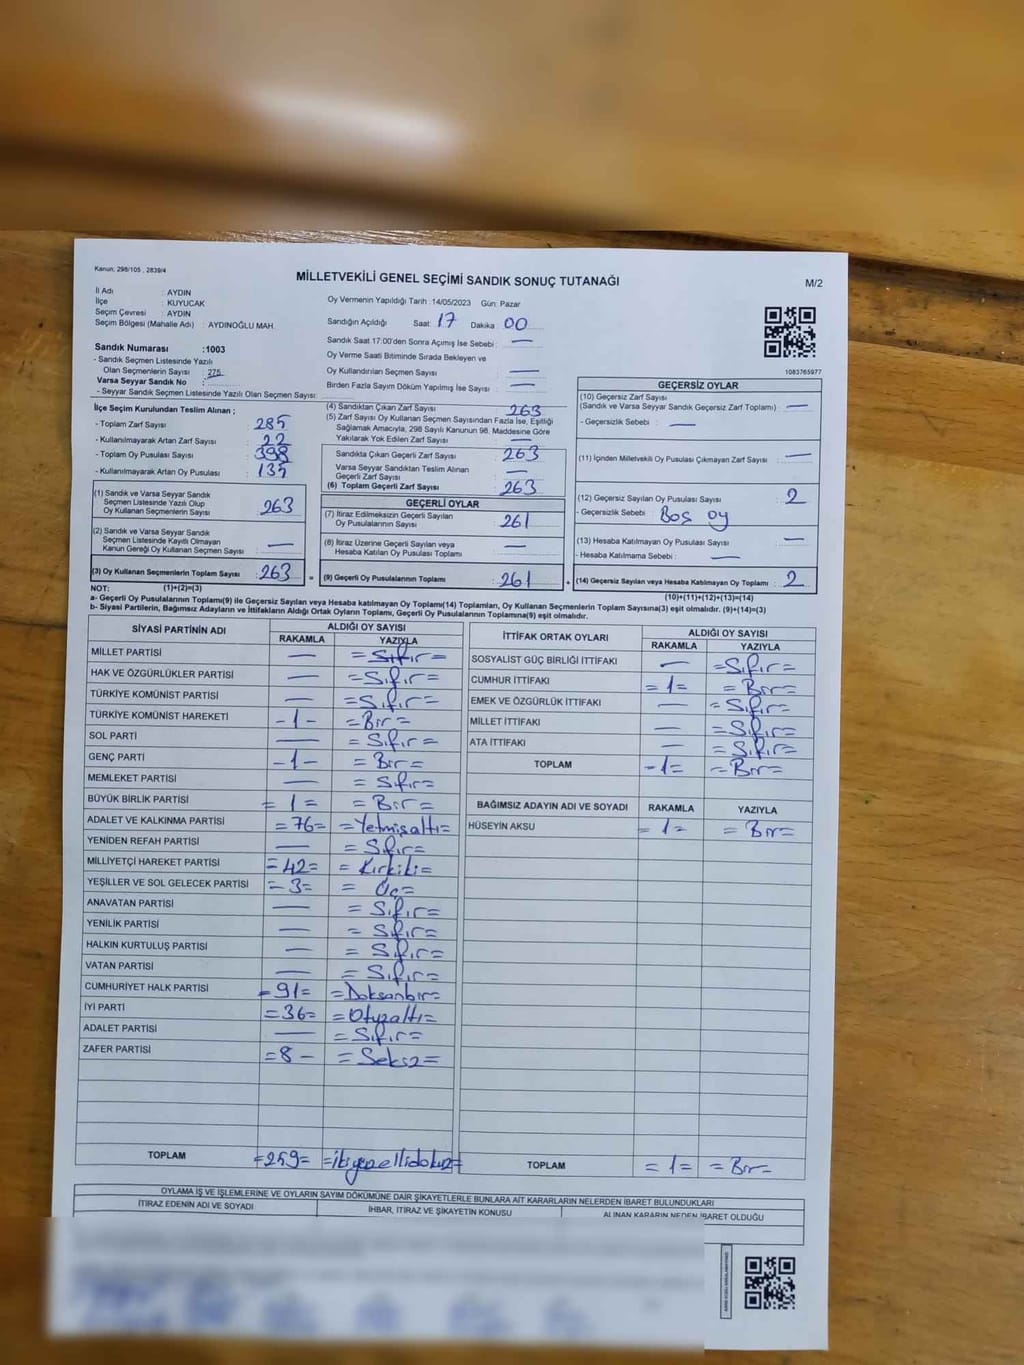 Kanun, 298/105 , 2839/4
MİLLETVEKİLİ GENEL SEÇİMİ SANDIK SONUÇ TUTANAĞI
M/2
İl Adı : AYDIN
İlçe : KUYUCAK
Seçim Çevresi : AYDIN
Seçim Bölgesi (Mahalle Adı) : AYDINOĞLU MAH.
Oy Vermenin Yapıldığı Tarih : 14/05/2023 Gün: Pazar
Sandığın Açıldığı Saat: 17 Dakika 00
Sandık Saat 17:00'den Sonra Açımış İse Sebebi : —
Oy Verme Saati Bitiminde Sırada Bekleyen ve
Oy Kullandırılan Seçmen Sayısı : —
Birden Fazla Sayım Döküm Yapılmış İse Sayısı : —
1083765977
Sandık Numarası :1003
- Sandık Seçmen Listesinde Yazılı
Olan Seçmenlerin Sayısı : 275
Varsa Seyyar Sandık No :
- Seyyar Sandık Seçmen Listesinde Yazılı Olan Seçmen Sayısı:
İlçe Seçim Kurulundan Teslim Alınan ;
- Toplam Zarf Sayısı : 285
- Kullanılmayarak Artan Zarf Sayısı : 22
- Toplam Oy Pusulası Sayısı : 398
- Kullanılmayarak Artan Oy Pusulası : 135
(1) Sandık ve Varsa Seyyar Sandık
Seçmen Listesinde Yazılı Olup
Oy Kullanan Seçmenlerin Sayısı : 263
(2) Sandık ve Varsa Seyyar Sandık
Seçmen Listesinde Kayıtlı Olmayan
Kanun Gereği Oy Kullanan Seçmen Sayısı : —
(3) Oy Kullanan Seçmenlerin Toplam Sayısı : 263
(4) Sandıktan Çıkan Zarf Sayısı : 263
(5) Zarf Sayısı Oy Kullanan Seçmen Sayısından Fazla İse, Eşitliği
Sağlamak Amacıyla, 298 Sayılı Kanunun 98. Maddesine Göre
Yakılarak Yok Edilen Zarf Sayısı : —
Sandıkta Çıkan Geçerli Zarf Sayısı : 263
Varsa Seyyar Sandıktan Teslim Alınan
Geçerli Zarf Sayısı : —
(6) Toplam Geçerli Zarf Sayısı : 263
GEÇERLİ OYLAR
(7) İtiraz Edilmeksizin Geçerli Sayılan
Oy Pusulalarının Sayısı : 261
(8) İtiraz Üzerine Geçerli Sayılan veya
Hesaba Katılan Oy Pusulası Toplamı : —
= (9) Geçerli Oy Pusulalarının Toplamı : 261 +
GEÇERSİZ OYLAR
(10) Geçersiz Zarf Sayısı
(Sandık ve Varsa Seyyar Sandık Geçersiz Zarf Toplamı) : —
- Geçersizlik Sebebi : —
(11) İçinden Milletvekili Oy Pusulası Çıkmayan Zarf Sayısı : —
(12) Geçersiz Sayılan Oy Pusulası Sayısı : 2
- Geçersizlik Sebebi : Boş oy
(13) Hesaba Katılmayan Oy Pusulası Sayısı : —
- Hesaba Katılmama Sebebi : —
(14) Geçersiz Sayılan veya Hesaba Katılmayan Oy Toplamı : 2
NOT: (1)+(2)=(3) (10)+(11)+(12)+(13)=(14)
a- Geçerli Oy Pusulalarının Toplamı(9) ile Geçersiz Sayılan veya Hesaba katılmayan Oy Toplamı(14) Toplamları, Oy Kullanan Seçmenlerin Toplam Sayısına(3) eşit olmalıdır. (9)+(14)=(3)
b- Siyasi Partilerin, Bağımsız Adayların ve İttifakların Aldığı Ortak Oyların Toplamı, Geçerli Oy Pusulalarının Toplamına(9) eşit olmalıdır.
SİYASİ PARTİNİN ADI ALDIĞI OY SAYISI
RAKAMLA YAZIYLA
MİLLET PARTİSİ — =Sıfır=
HAK VE ÖZGÜRLÜKLER PARTİSİ — =Sıfır=
TÜRKİYE KOMÜNİST PARTİSİ — =Sıfır=
TÜRKİYE KOMÜNİST HAREKETİ -1- =Bir=
SOL PARTİ — =Sıfır=
GENÇ PARTİ -1- =Bir=
MEMLEKET PARTİSİ — =Sıfır=
BÜYÜK BİRLİK PARTİSİ =1= =Bir=
ADALET VE KALKINMA PARTİSİ =76= =Yetmişaltı=
YENİDEN REFAH PARTİSİ — =Sıfır=
MİLLİYETÇİ HAREKET PARTİSİ =42= =Kırkiki=
YEŞİLLER VE SOL GELECEK PARTİSİ -3= =Üç=
ANAVATAN PARTİSİ — =Sıfır=
YENİLİK PARTİSİ — =Sıfır=
HALKIN KURTULUŞ PARTİSİ — =Sıfır=
VATAN PARTİSİ — =Sıfır=
CUMHURİYET HALK PARTİSİ =91= =Doksanbir=
İYİ PARTİ =36= =Otuzaltı=
ADALET PARTİSİ — =Sıfır=
ZAFER PARTİSİ =8- =Sekiz=
TOPLAM =259= =ikiyüzellidokuz=
İTTİFAK ORTAK OYLARI ALDIĞI OY SAYISI
RAKAMLA YAZIYLA
SOSYALİST GÜÇ BİRLİĞİ İTTİFAKI — =Sıfır=
CUMHUR İTTİFAKI =1= =Bir=
EMEK VE ÖZGÜRLÜK İTTİFAKI — =Sıfır=
MİLLET İTTİFAKI — =Sıfır=
ATA İTTİFAKI — =Sıfır=
TOPLAM -1= =Bir=
BAĞIMSIZ ADAYIN ADI VE SOYADI RAKAMLA YAZIYLA
HÜSEYİN AKSU =1= =Bir=
TOPLAM =1= =Bir=
OYLAMA İŞ VE İŞLEMLERİNE VE OYLARIN SAYIM DÖKÜMÜNE DAİR ŞİKAYETLERLE BUNLARA AİT KARARLARIN NELERDEN İBARET BULUNDUKLARI
İTİRAZ EDENİN ADI VE SOYADI İHBAR, İTİRAZ VE ŞİKAYETİN KONUSU ALINAN KARARIN NEDEN İBARET OLDUĞU